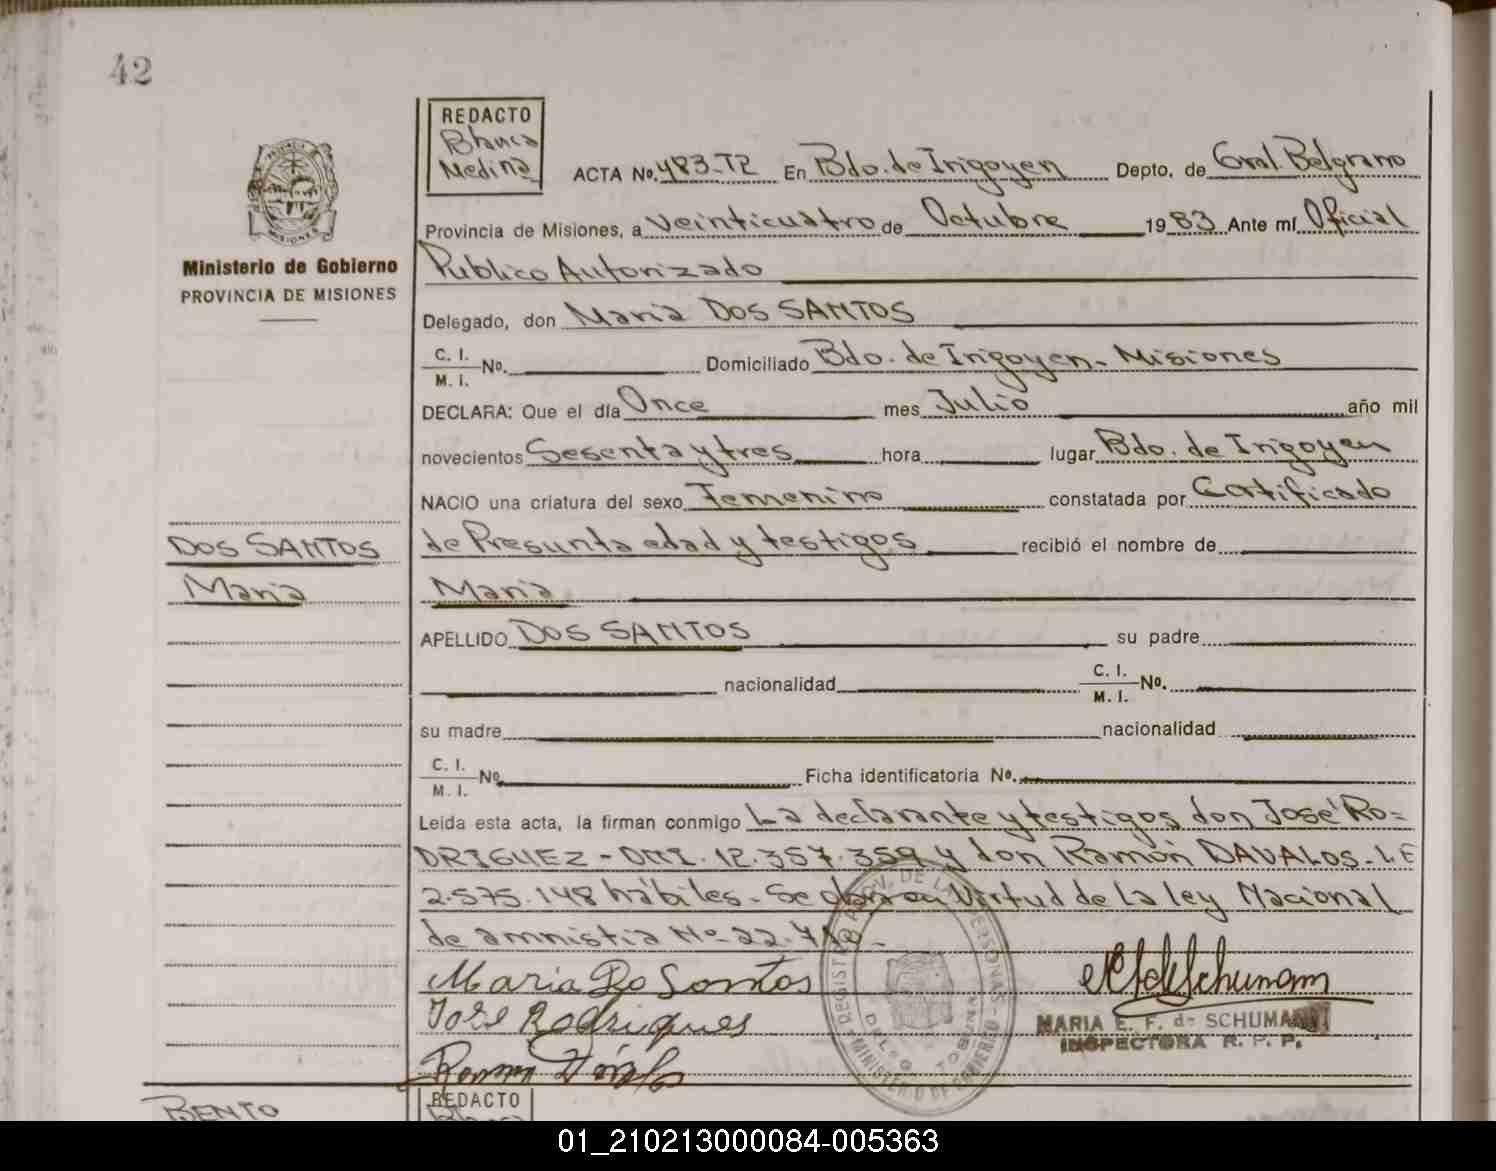 42
REDACTO
Blanca
Medina
ACTA No. 483-T2 En Bdo. de Irigoyen Depto. de Gral. Belgrano
Provincia de Misiones, a Veinticuatro de Octubre 1983 Ante mí Oficial
Publico Autorizado
Ministerio de Gobierno
PROVINCIA DE MISIONES
Delegado, don Maria DOS SANTOS
C. I.
M. I. No. Domiciliado Bdo. de Irigoyen - Misiones
DECLARA: Que el día Once mes Julio año mil
novecientos Sesenta y tres hora lugar Bdo. de Irigoyen
NACIO una criatura del sexo Femenino constatada por Certificado
DOS SANTOS
Maria
de Presunta edad y testigos recibió el nombre de
Maria
APELLIDO DOS SANTOS su padre
nacionalidad C. I.
M. I. No.
su madre nacionalidad
C. I.
M. I. No. Ficha identificatoria No.
Leída esta acta, la firman conmigo La declarante y testigos don José RO=
DRIGUEZ - DNI. 12.357.359 y don Ramón DAVALOS - L.E
2.575.148 hábiles - Se obra en Virtud de La ley Nacional
de amnistia Nº 22.
Maria Do Santos
José Rodrigues
Ramon
MARIA E. F. de SCHUMANN
INSPECTORA R. P. P.
BENTO
REDACTO
01_210213000084-005363